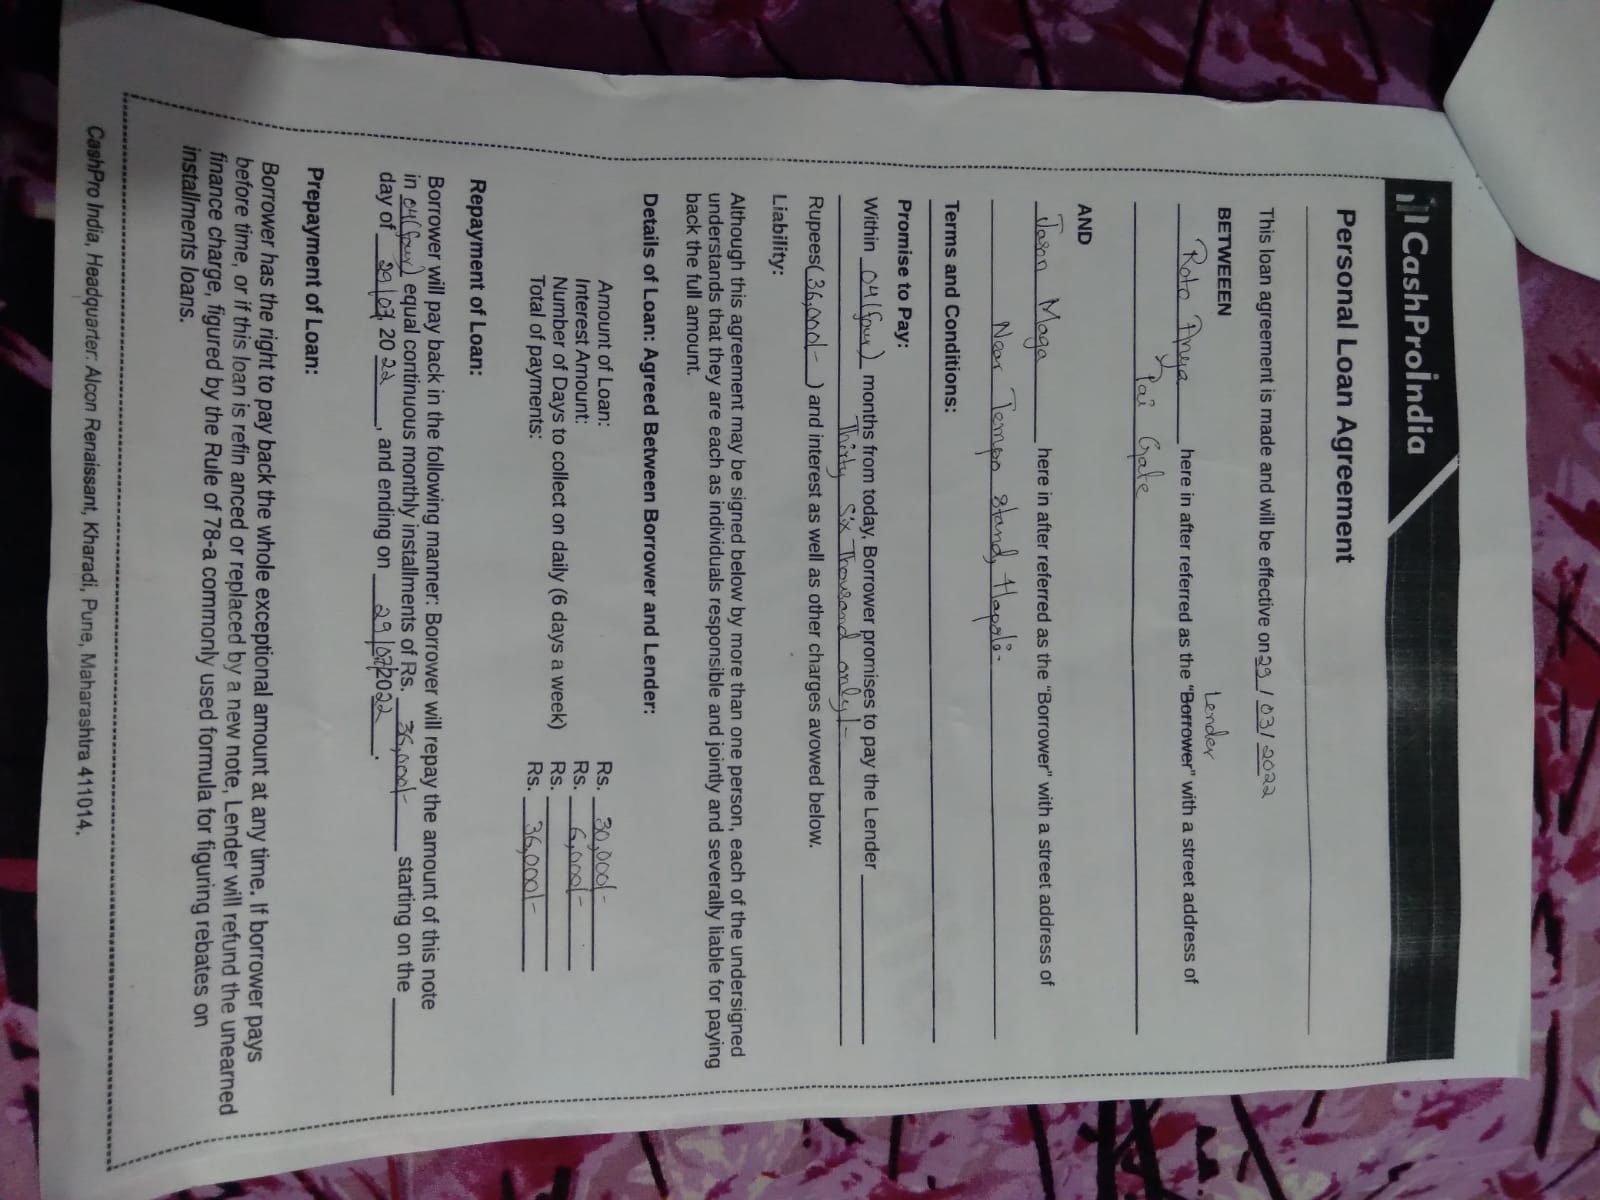 CashProIndia
Personal Loan Agreement
This loan agreement is made and will be effective on 29 / 03 / 2022
BETWEEN
Lender
Roto Anya here in after referred as the "Borrower" with a street address of
Pai Gate
AND
John Maga here in after referred as the "Borrower" with a street address of
Near Tempo Stand, Hapoli.
Terms and Conditions:
Promise to Pay:
Within 04 (four) months from today, Borrower promises to pay the Lender
Thirty Six Thousand only/-
Rupees(36,000/-) and interest as well as other charges avowed below.
Liability:
Although this agreement may be signed below by more than one person, each of the undersigned
understands that they are each as individuals responsible and jointly and severally liable for paying
back the full amount.
Details of Loan: Agreed Between Borrower and Lender:
Amount of Loan: Rs. 30,000/-
Interest Amount: Rs. 6,000/-
Number of Days to collect on daily (6 days a week) Rs.
Total of payments: Rs. 36,000/-
Repayment of Loan:
Borrower will pay back in the following manner: Borrower will repay the amount of this note
in 04 (four) equal continuous monthly installments of Rs. 36,000/- starting on the
day of 29/07 20 22, and ending on 29/07/2022.
Prepayment of Loan:
Borrower has the right to pay back the whole exceptional amount at any time. If borrower pays
before time, or if this loan is refin anced or replaced by a new note, Lender will refund the unearned
finance charge, figured by the Rule of 78-a commonly used formula for figuring rebates on
installments loans.
CashPro India, Headquarter: Alcon Renaissant, Kharadi, Pune, Maharashtra 411014.